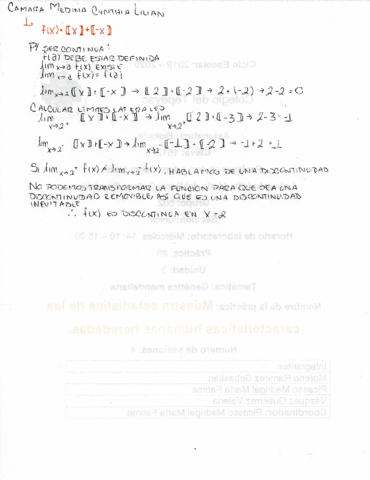 CAMARA MEDINA CYNTHIA LILIAN
1.
f(x)=⟦x⟧+⟦-x⟧
P/ SER CONTINUA:
f(a) DEBE ESTAR DEFINIDA
lim x→a f(x) EXISTE
lim x→a f(x) = f(a)
lim x→2 ⟦x⟧+⟦-x⟧ → ⟦2⟧+⟦-2⟧ → 2+(-2) → 2-2=0
CALCULAR LÍMITES LATERALES
lim x→2⁺ ⟦x⟧+⟦-x⟧ → lim x→2⁺ ⟦2⟧+⟦-3⟧ → 2-3=-1
lim x→2⁻ ⟦x⟧+⟦-x⟧ → lim x→2⁻ ⟦-1⟧-⟦-2⟧ → -1+2=1
SI lim x→2⁺ f(x) ≠ lim x→2⁻ f(x), HABLAMOS DE UNA DISCONTINUIDAD
NO PODEMOS TRANSFORMAR LA FUNCIÓN PARA QUE SEA UNA
DISCONTINUIDAD REMOVIBLE, ASÍ QUE ES UNA DISCONTINUIDAD
INEVITABLE
∴ f(x) ES DISCONTINUA EN X=2
Ciclo Escolar: 2019 - 2020
Colegio del Tepeyac
Horario de laboratorio: Miércoles 14:10 - 15:50
Práctica: #6
Unidad: 3
Temática: Genética mendeliana
Nombre de la práctica: Muestra estadística de las
características humanas heredadas.
Número de sesiones: 4
Integrantes:
Moreno Ramírez Sebastián
Picasso Madrigal María Fátima
Vázquez Gutiérrez Valeria
Coordinador: Picasso Madrigal María Fátima